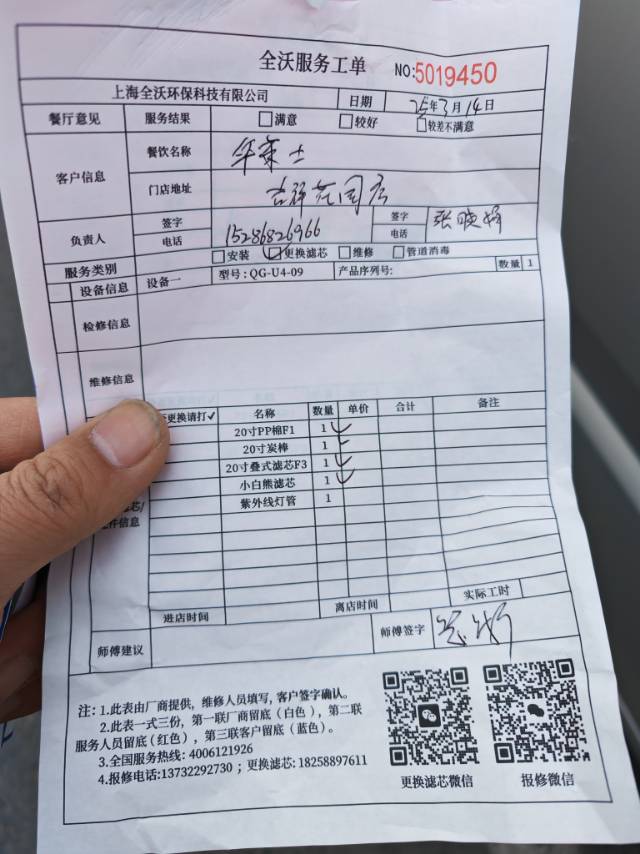 全沃服务工单 NO:5019450
上海全沃环保科技有限公司 日期 25年3月14日
餐厅意见 服务结果 □满意 □较好 □较差不满意
客户信息 餐饮名称 华莱士
门店地址 吉祥花园店
负责人 签字 电话 15286826966 签字 电话 张晓娟
服务类别 □安装 ☑更换滤芯 □维修 □管道消毒
设备信息 设备一 型号: QG-U4-09 产品序列号: 数量 1
检修信息
维修信息
更换请打✓ 名称 数量 单价 合计 备注
20寸PP棉F1 1 ✓
20寸炭棒 1 ✓
20寸叠式滤芯F3 1 ✓
小白熊滤芯 1 ✓
紫外线灯管 1
件信息
进店时间 离店时间 实际工时
师傅建议 师傅签字
注: 1.此表由厂商提供，维修人员填写，客户签字确认。
2.此表一式三份，第一联厂商留底（白色），第二联
服务人员留底（红色），第三联客户留底（蓝色）。
3.全国服务热线: 4006121926
4.报修电话:13732292730；更换滤芯: 18258897611
更换滤芯微信 报修微信